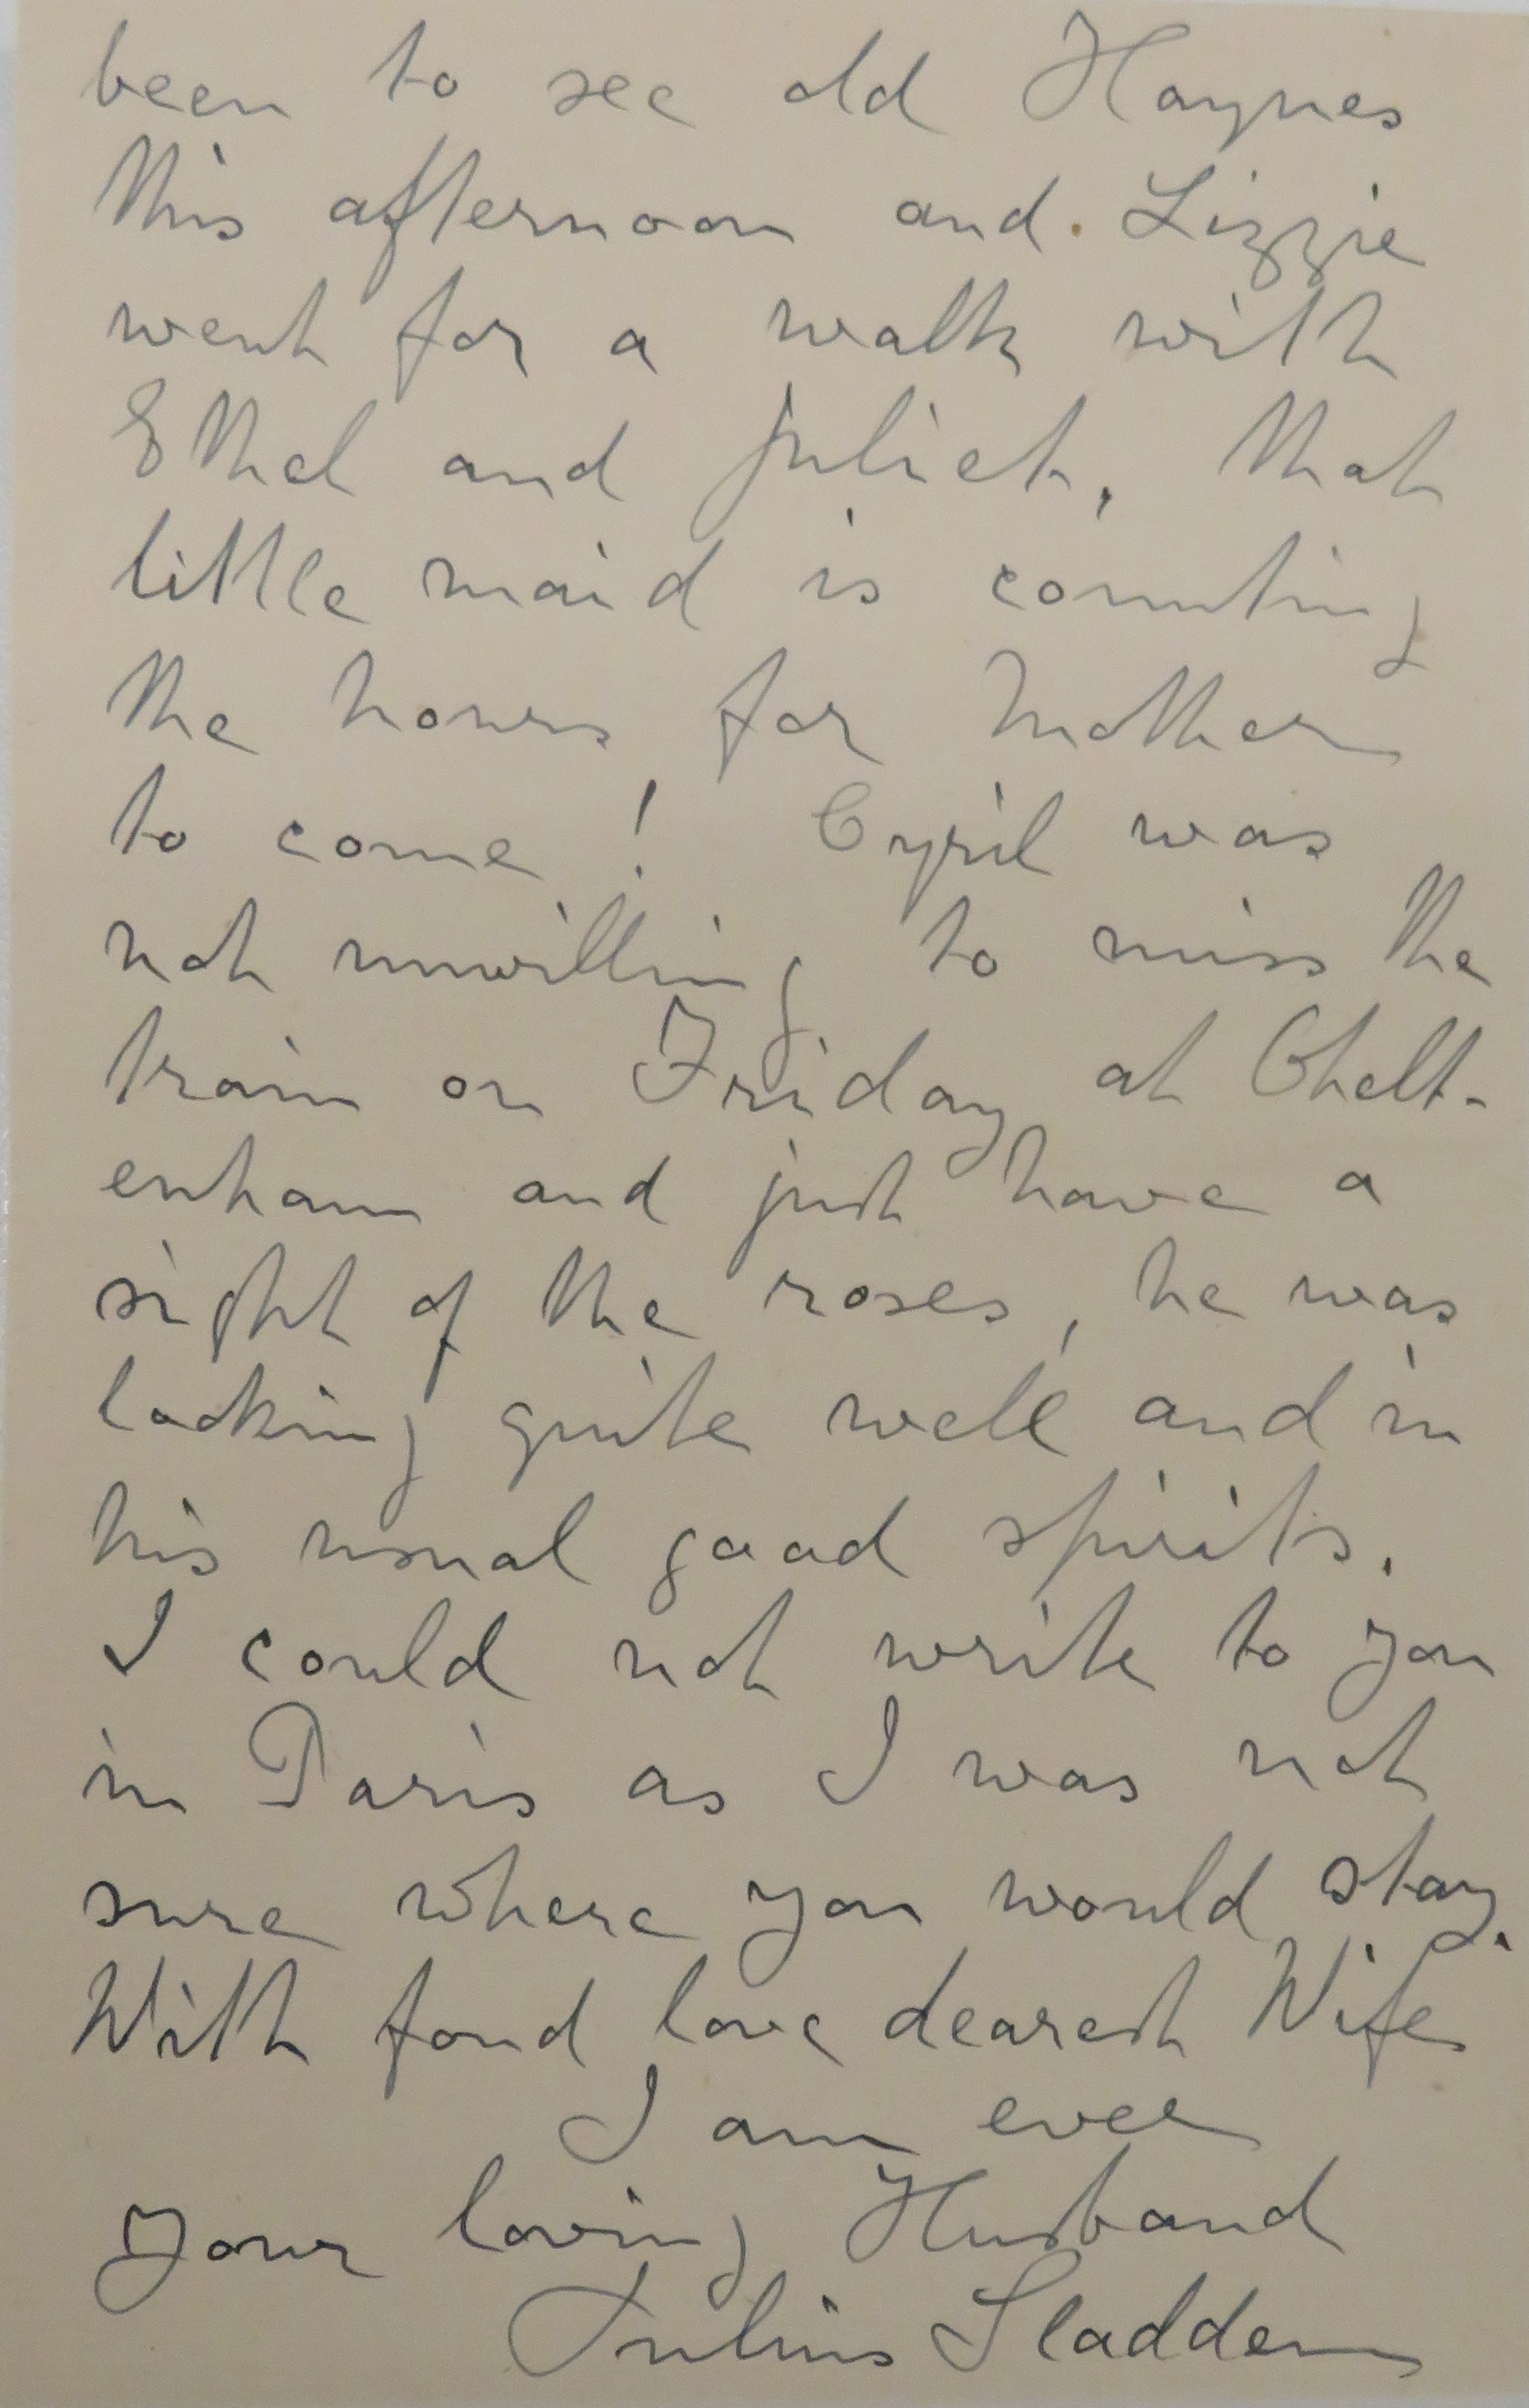 been to see old Haynes
this afternoon and Lizzie
went for a walk with
Ethel and Juliet, that
little maid is counting
the hours for Mother
to come! Cyril was
not unwilling to miss the
train on Friday at Chelt-
enham and just have a
sight of the roses, he was
looking quite well and in
his usual good spirits.
I could not write to you
in Paris as I was not
sure where you would stay.
With fond love dearest Wife
I am ever
Your loving Husband
Julius Sladden